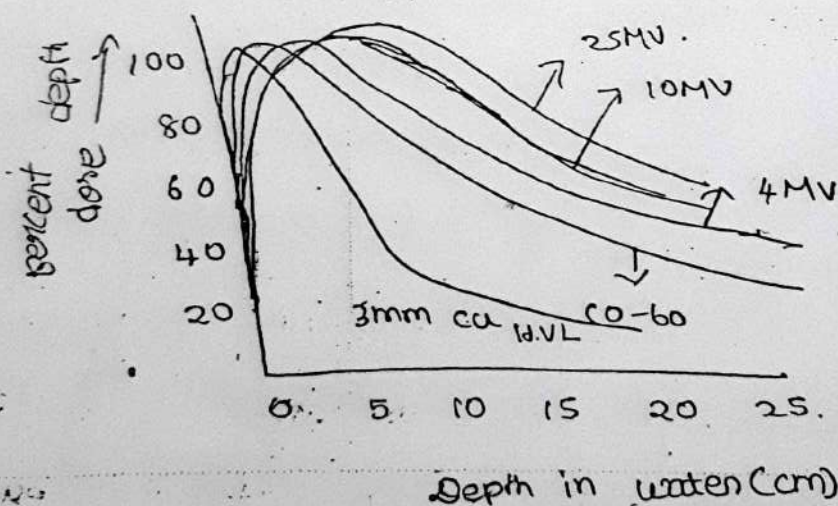 percent depth
dose
100
80
60
40
20
25MV.
10MV
4MV
3mm cu H.VL
CO-60
0. 5. 10 15 20 25.
Depth in water (cm)